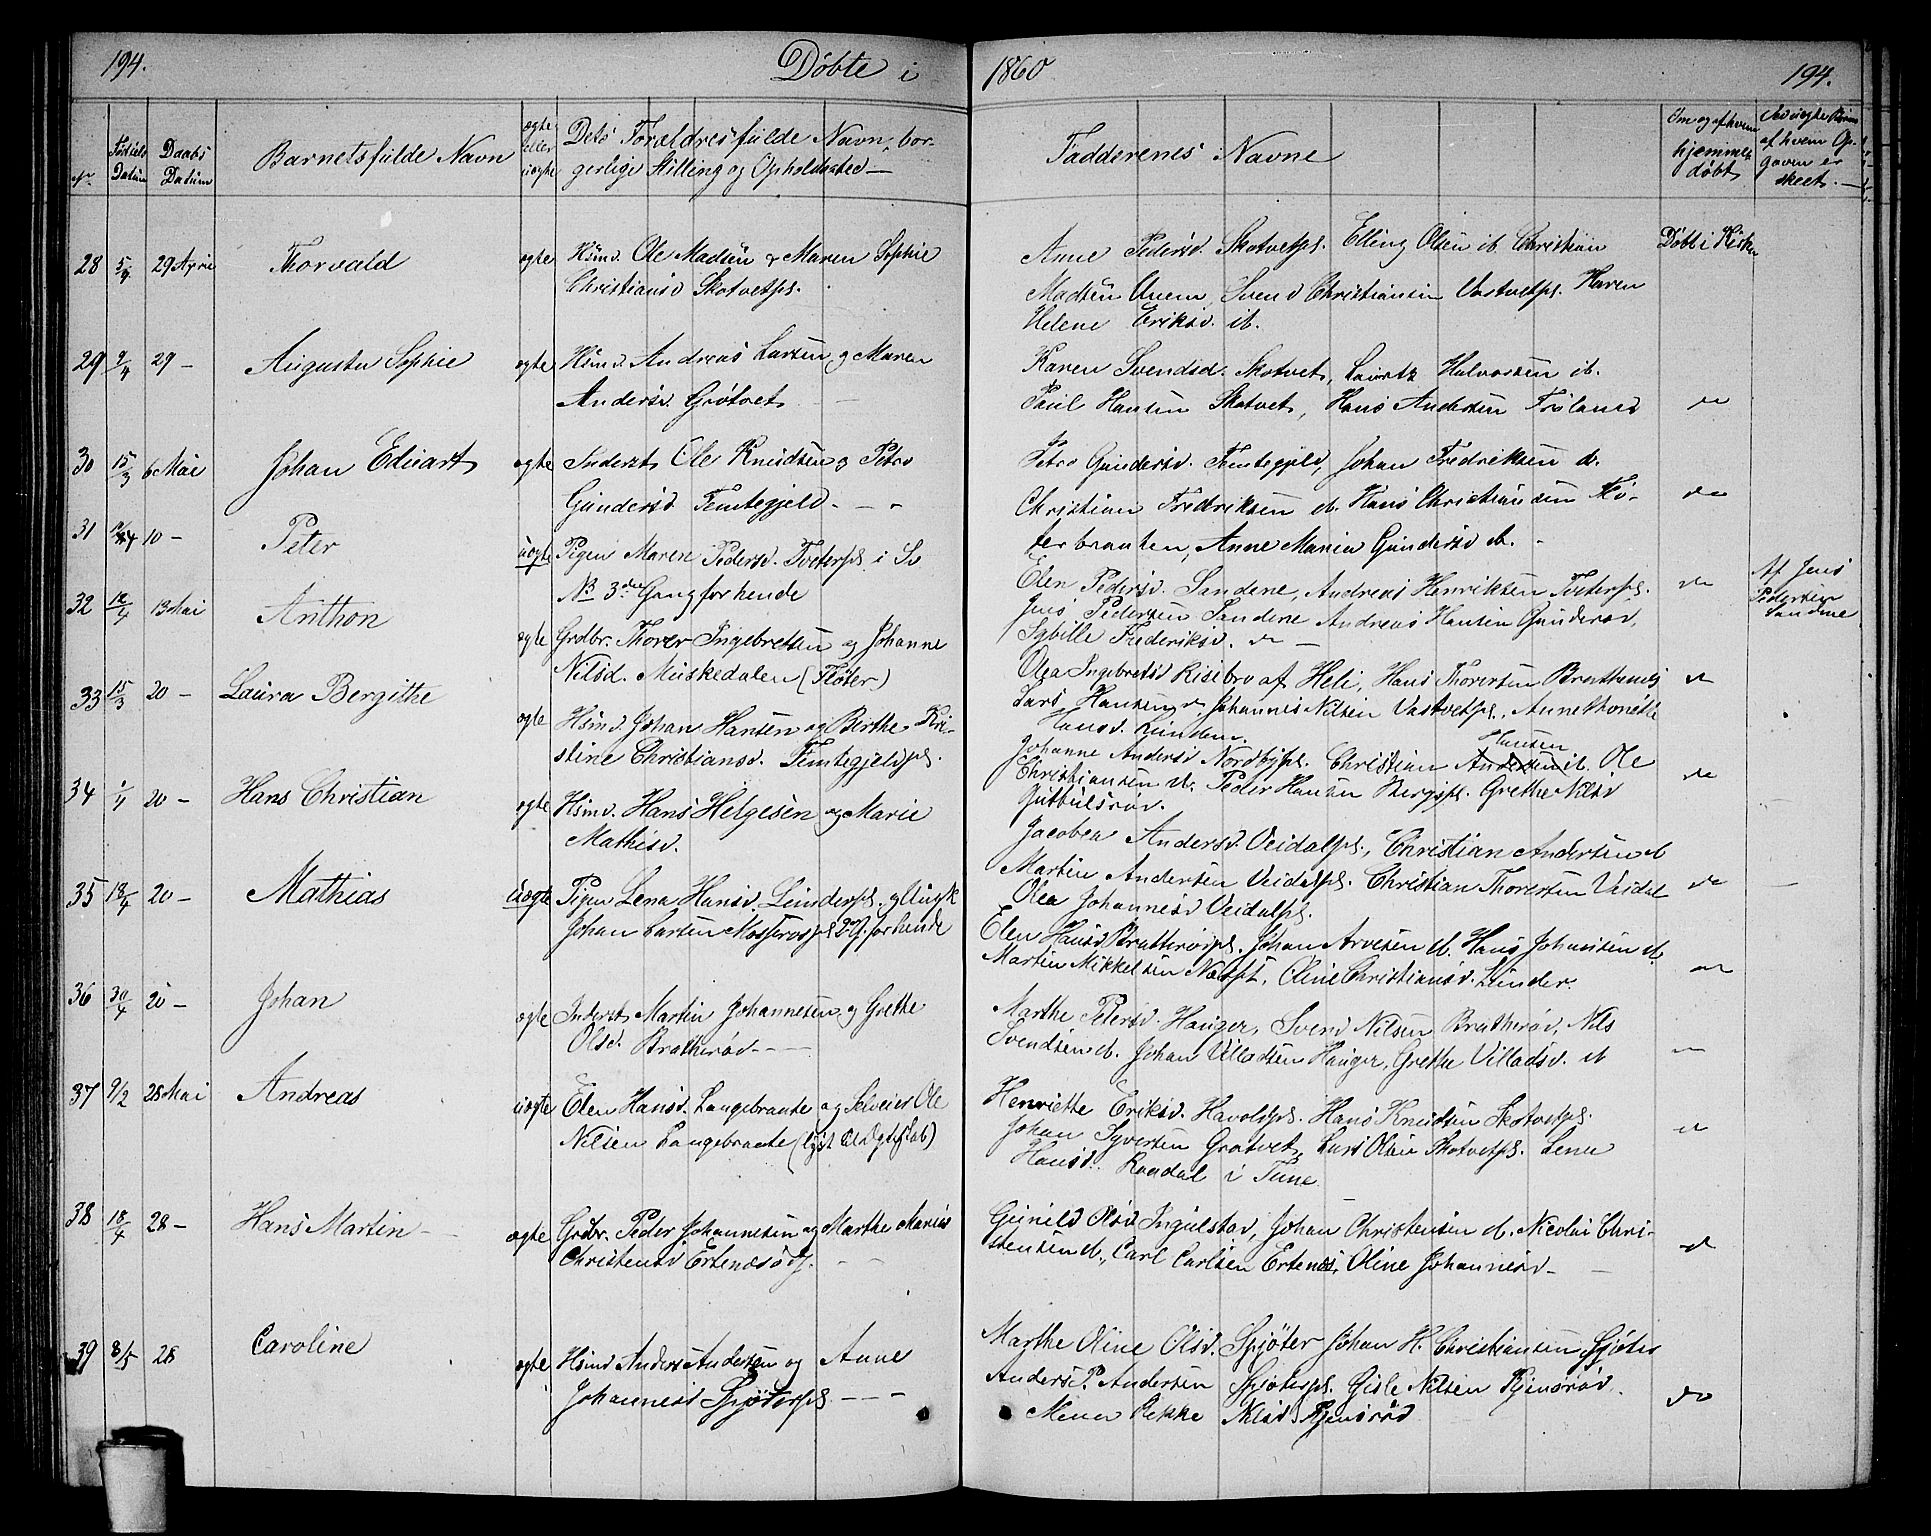 194. Døbte i 1860 194.
No Fødsels Datum Daabs Datum Barnets fulde Navn ægte eller uægte Dets Forældres fulde Navn, bor-
gerlige Stilling og Opholdssted — Faddernes Navne Om og af hvem hjemme døbt
af hvem Op-
gaven er
skeet. —
28 5/4 29 April Thorvald ægte Hsmd. Ole Madsen & Maren Sophie
Christiansd Skotvetpl.
Anne Pedersd. Skotvetpl. Elling Olsen ib. Christian
Madsen Svend Christiansen Vastvetpl. Karen
Helene Eriksd. ib.
Døbt i Kirken
29 9/4 29 — Augusta Sophie ægte Hsmd. Andreas Larsen og Maren
Andersd. Grøtvet —
Karen Svendsd. Skotvet, Lauritz Halvorsen ib.
Paul Hansen Skotvet, Hans Andersen Frøland
do
30 15/3 6 Mai Johan Eduart ægte Inderst Ole Knudsen og Petro
Gundersd. Femtegjeld. — —
Petro Gundersd. Femtegjeld, Johan Fredriksen do.
Christian Fredriksen do. Hans Christiansen Kø-
terbraaten, Anne Maria Gundersd do. —
do
31 10 — Peter uægte Pigen Maren Pedersd. Tveterpl. i So
NB 3die Gang for hende
Elen Pedersd. Sandene, Andreas Henriksen Tveterpl.
Jens Pedersen Sandene Andreas Hansen Gunderød,
Sybille Frederiksd. do —
do
Af Jens
Pedersen
Sandene
32 12/4 13 Mai Anthon ægte Grdbr. Thorer Ingebretsen og Johanne
Nilsd. Muskedalen (Fløter)
Olea Ingebretsd Risebro af Heli, Hans Thoresen
Lars Hansen do Johannes Nilsen Vastvetpl., Anne Thonette
Hansd. Lunden.
do
33 15/3 20 — Laura Bergithe ægte Hsmd. Johan Hansen og Birthe Kri-
stine Christiansd. Femtegjeldpl.
Johanne Andersd Nordbypl. Christian Hansen ib. Ole
Christiansen do. Peder Hansen Bergspl. Grethe Nilsd
Gutbulsrød.
do
34 1/4 20 — Hans Christian ægte Hsmd. Hans Helgesen og Marie
Mathisd.
Jacobea Andersd. Veidalpl., Christian Andersen do
Martin Andersen Veidalpl. Christian Thoresen Veidal
Olea Johannesd Veidalpl.
do —
35 18/4 20 — Mathias uægte Pigen Lena Hansd. Lunderpl. og Ungk
Johan Larsen Mosserospl 2 G. for hende
Elen Hansd Bratterødpl. Johan Arvesen do. Hans Johansen do.
Martin Mikkelsen Næspl, Oline Christiansd. Lunder.
do
36 30/4 20 — Johan ægte Inderst Martin Johannesen og Grethe
Olsd. Bratherød — —
Marthe Petersd. Hauger, Svend Nilsen Bratherød, Nils
Svendsen do. Johan Villadsen Hauger, Grethe Villadsd. do
do
37 9/2 28 Mai Andreas uægte Elen Hansd. Langebraate og Selveier Ole
Nilsen Langebraate (lyst til Ægteskab)
Henriette Eriksd. Havoldpl. Hans Knudsen Skotvetpl.
Johan Syversen Grøtvet, Lars Olsen Skotvetpl. Lena
Hansd. Raadal i Tune
do
38 18/4 28 — Hans Martin — ægte Grdbr. Peder Johannesen og Marthe Marie
Christensd Ertenæsødg. — —
Gunild Olsd Ingulstad, Johan Christensen do. Nicolai Chri-
stensen do., Carl Carlsen Ertenæs, Oline Johannesd —
do
39 8/5 28 Caroline ægte Hsmd Anders Andersen og Anne
Johannesd Spjøterpl. — —
Marthe Oline Olsd. Spjøter Johan H. Christiansen Spjøter
Anders P. Andersen Spjøterpl. Gisle Nilsen Kjensrød.
Mena Rekke Nilsd Kjensrød
do